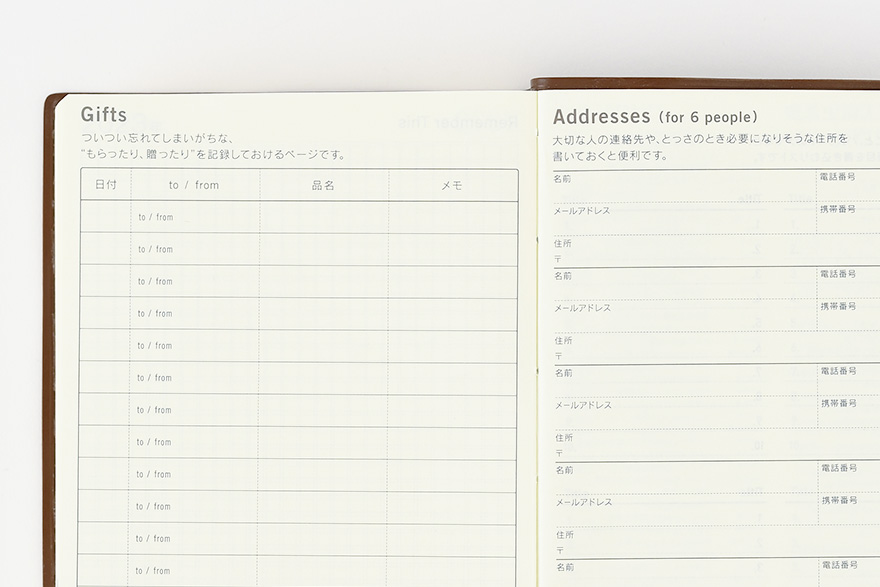 Gifts
ついつい忘れてしまいがちな、
"もらったり、贈ったり"を記録しておけるページです。
日付 to / from 品名 メモ
to / from
to / from
to / from
to / from
to / from
to / from
to / from
to / from
to / from
to / from
to / from
to / from
Addresses (for 6 people)
大切な人の連絡先や、とっさのとき必要になりそうな住所を
書いておくと便利です。
名前 電話番号
メールアドレス 携帯番号
住所
〒
名前 電話番号
メールアドレス 携帯番号
住所
〒
名前 電話番号
メールアドレス 携帯番号
住所
〒
名前 電話番号
メールアドレス 携帯番号
住所
〒
名前 電話番号